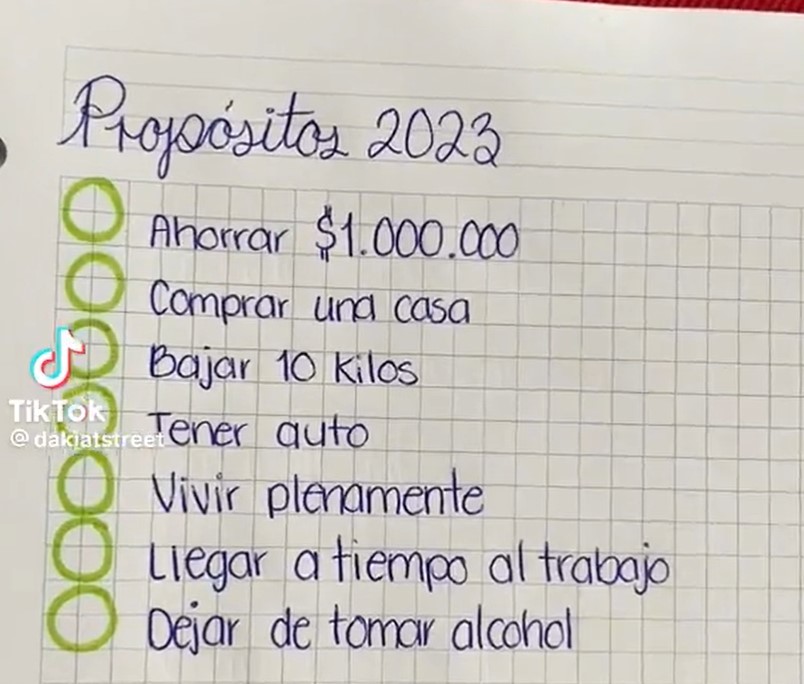 Propósitos 2023
Ahorrar $1.000.000
Comprar una casa
Bajar 10 kilos
Tener auto
Vivir plenamente
Llegar a tiempo al trabajo
Dejar de tomar alcohol
TikTok
@dakiatstreet